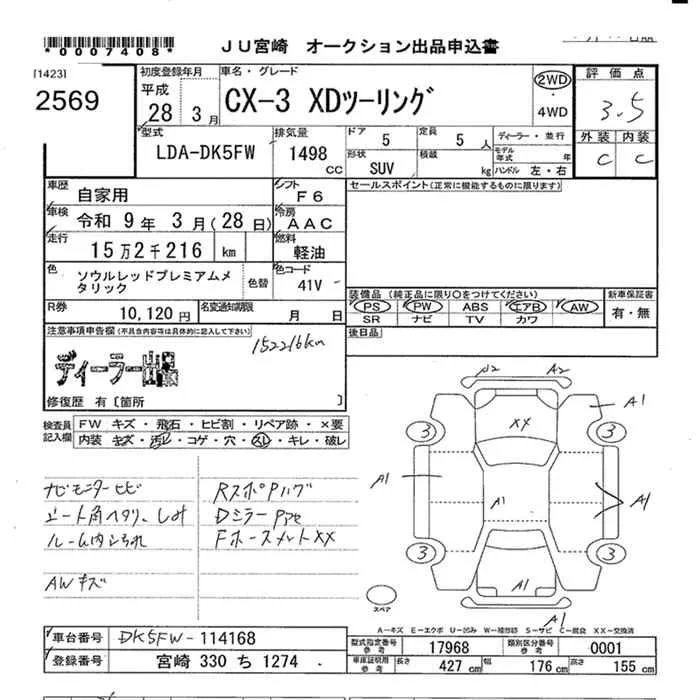 *0007408*
JU宮崎 オークション出品申込書
[1423]
2569
初度登録年月
平成
28 3月
車名・グレード
CX-3 XDツーリング
2WD
・
4WD
評価点
3.5
外装 内装
C C
型式
LDA-DK5FW
排気量
1498
CC
ドア
5
定員
5人
形状
SUV
積載
kg
ディーラー・並行
モデル年式 年
ハンドル 左・右
車歴
自家用
シフト
F6
車検
令和 9年 3月(28日)
冷房
AAC
走行
15万2千216 km
燃料
軽油
色
ソウルレッドプレミアムメ
タリック
色替
色コード
41V-
R券
10,120円
名変通知期限
月 日
セールスポイント(正常に機能するものに限ります)
装備品(純正品に限り○をつけてください)
PS PW ABS エアB AW
SR ナビ TV カワ
新車保証書
有・無
後日品
注意事項申告欄(不具合内容等は具体的に記入して下さい)
152216km
ディーラー出品
修復歴 有〔箇所 〕
検査員
記入欄
FW キズ・飛石・ヒビ割・リペア跡・×要
内装 キズ・汚レ・コゲ・穴・スレ・キレ・破レ
ナビモニターヒビ
シート角ヘタリ、しみ
ルーム内汚れ
AWキズ
Dミラー
A2 A2
XX
A1
3 3
A1 A1 A1
3 3
A1
A1
スペア
A-キズ E-エクボ U-凹み W-補修跡 S-サビ C-腐食 XX-交換済
車台番号
DK5FW-114168
登録番号
宮崎 330 ち 1274
型式指定番号
参考
17968
類別区分番号
参考
0001
車庫証明用
参考
長さ
427 cm
幅
176 cm
高さ
155 cm